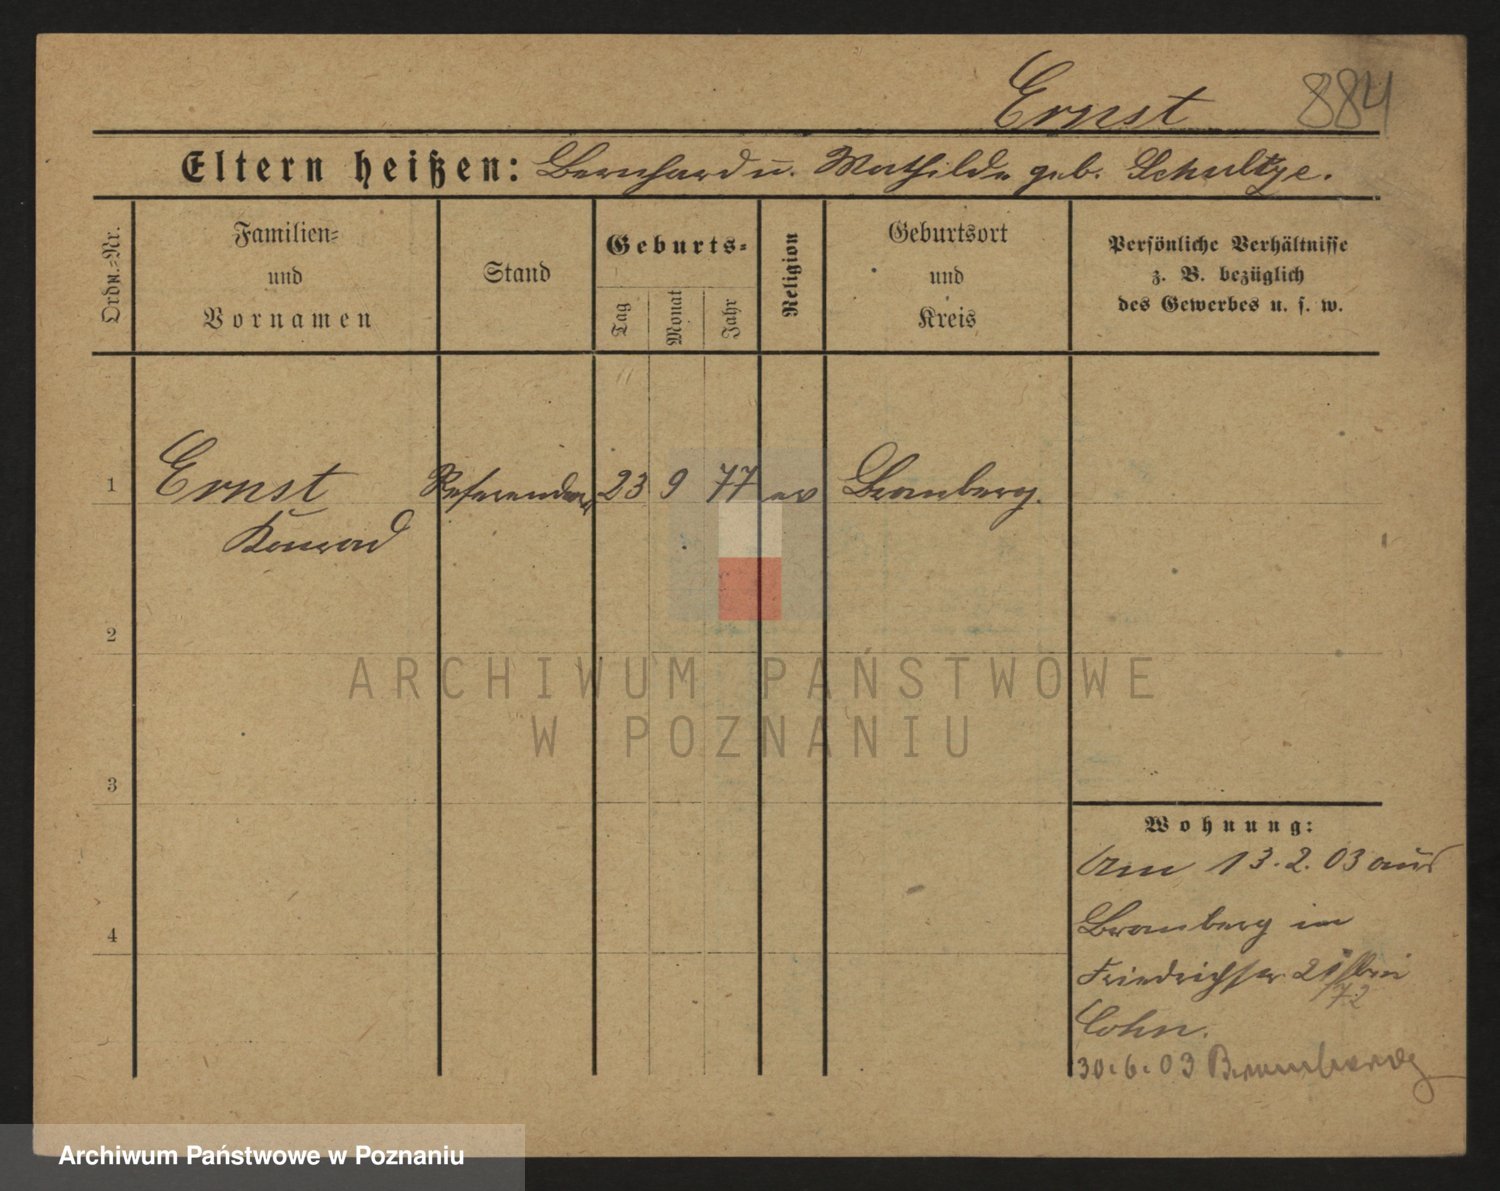 Ernst 884
Eltern heißen: Bernhard u. Mathilde geb. Schultze.
Ordn.-Nr.
Familien-
und
Vornamen
Stand
Geburts-
Tag
Monat
Jahr
Religion
Geburtsort
und
Kreis
Persönliche Verhältnisse
z. B. bezüglich
des Gewerbes u. s. w.
1 Ernst Referendar 23 9 77 ev Bromberg.
Konrad
2
ARCHIWUM PAŃSTWOWE
W POZNANIU
3
Wohnung:
Am 13.2.03 aus
4
Bromberg in
Friedrichstr. 21 bei
Cohn.
30.6.03 Bromberg
Archiwum Państwowe w Poznaniu